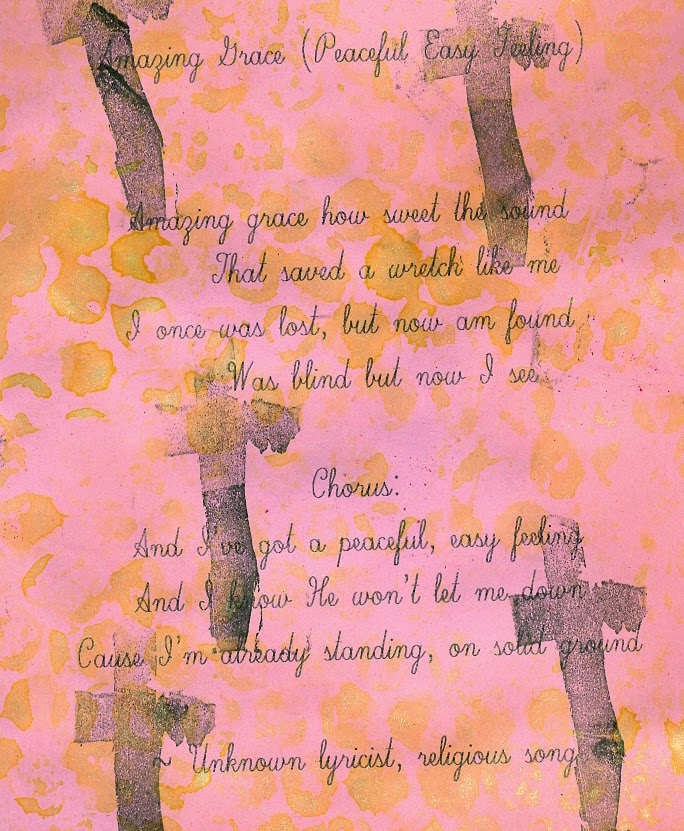 Amazing Grace (Peaceful Easy Feeling)
Amazing grace how sweet the sound
That saved a wretch like me
I once was lost, but now am found
Was blind but now I see
Chorus:
And I've got a peaceful, easy feeling
And I know He won't let me down
Cause I'm already standing, on solid ground
~ Unknown lyricist, religious song